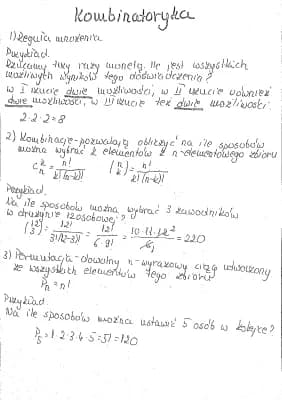 Kombinatoryka
1) Reguła mnożenia
Przykład.
Rzucamy trzy razy monetą. Ile jest wszystkich
możliwych wyników tego doświadczenia?
w I rzucie dwie możliwości, w II rzucie również
dwie możliwości, w III rzucie też dwie możliwości.
2·2·2=8
2) Kombinacje - pozwalają obliczyć na ile sposobów
można wybrać k elementów z n-elementowego zbioru
C_n^k = n!/k!(n-k)! (n k) = n!/k!(n-k)!
Przykład.
Na ile sposobów można wybrać 3 zawodników
w drużynie 12 osobowej?
(12 3) = 12!/3!(12-3)! = 12!/6·9! = 10·11·12²/6 = 220
3) Permutacja - dowolny n-wyrazowy ciąg utworzony
ze wszystkich elementów tego zbioru
P_n = n!
Przykład.
Na ile sposobów można ustawić 5 osób w kolejce?
P_5 = 1·2·3·4·5=5!=120